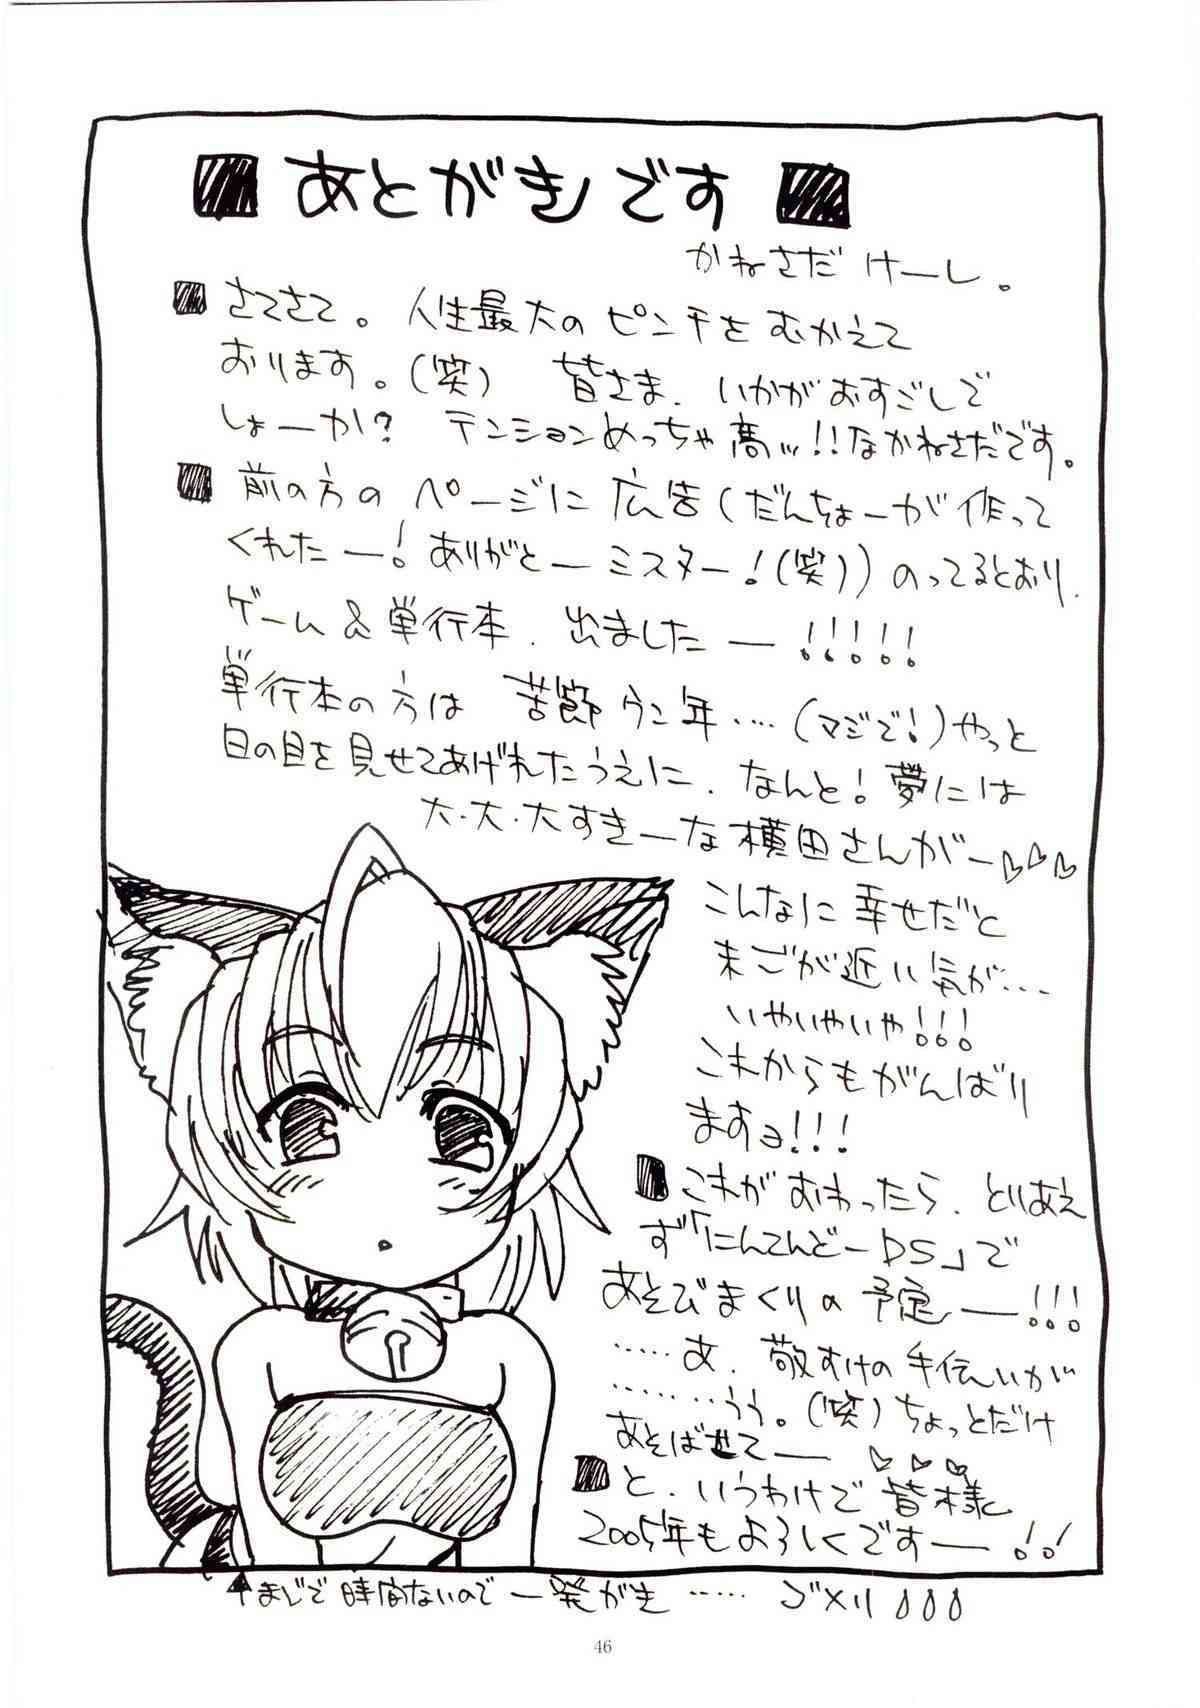 ■ あとがきです ■
かねさだ けーし。
■ さてさて。人生最大のピンチをむかえて
おります。(笑) 皆さま、いかがおすごしで
しょーか? テンションめっちゃ高ッ!!なかねさだです。
■ 前の方のページに広告(だんちょーが作って
くれたー!ありがとーミスター!(笑))のってるとおり、
ゲーム&単行本、出ましたー!!!!!
単行本の方は 苦節ウン年‥‥(マジで!)やっと
日の目を見せてあげれたうえに、なんと!夢には
大・大・大すきーな横田さんがー♡♡♡
こんなに幸せだと
まごが近い気が‥‥
いやいやいや!!!
これからもがんばり
ますョ!!!
■ これがおわったら、とりあえ
ず「にんてんどーDS」で
あそびまくりの予定ー!!!
‥‥‥あ、敬すけの手伝いが
‥‥‥‥うう。(笑)ちょっとだけ
あそばせてー ♡♡♡
■ と、いうわけで皆様
2005年もよろしくですー!!
↑まじで時間ないので一発がき‥‥‥ゴメリ
46